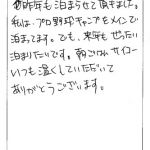 昨年も泊まらせて頂きました。
私は、プロ野球キャンプをメインで
泊まってます。でも、来年もぜったい
泊まりたいです。朝ごはんサイコー
いつも温くしていただいて
ありがとうございます。